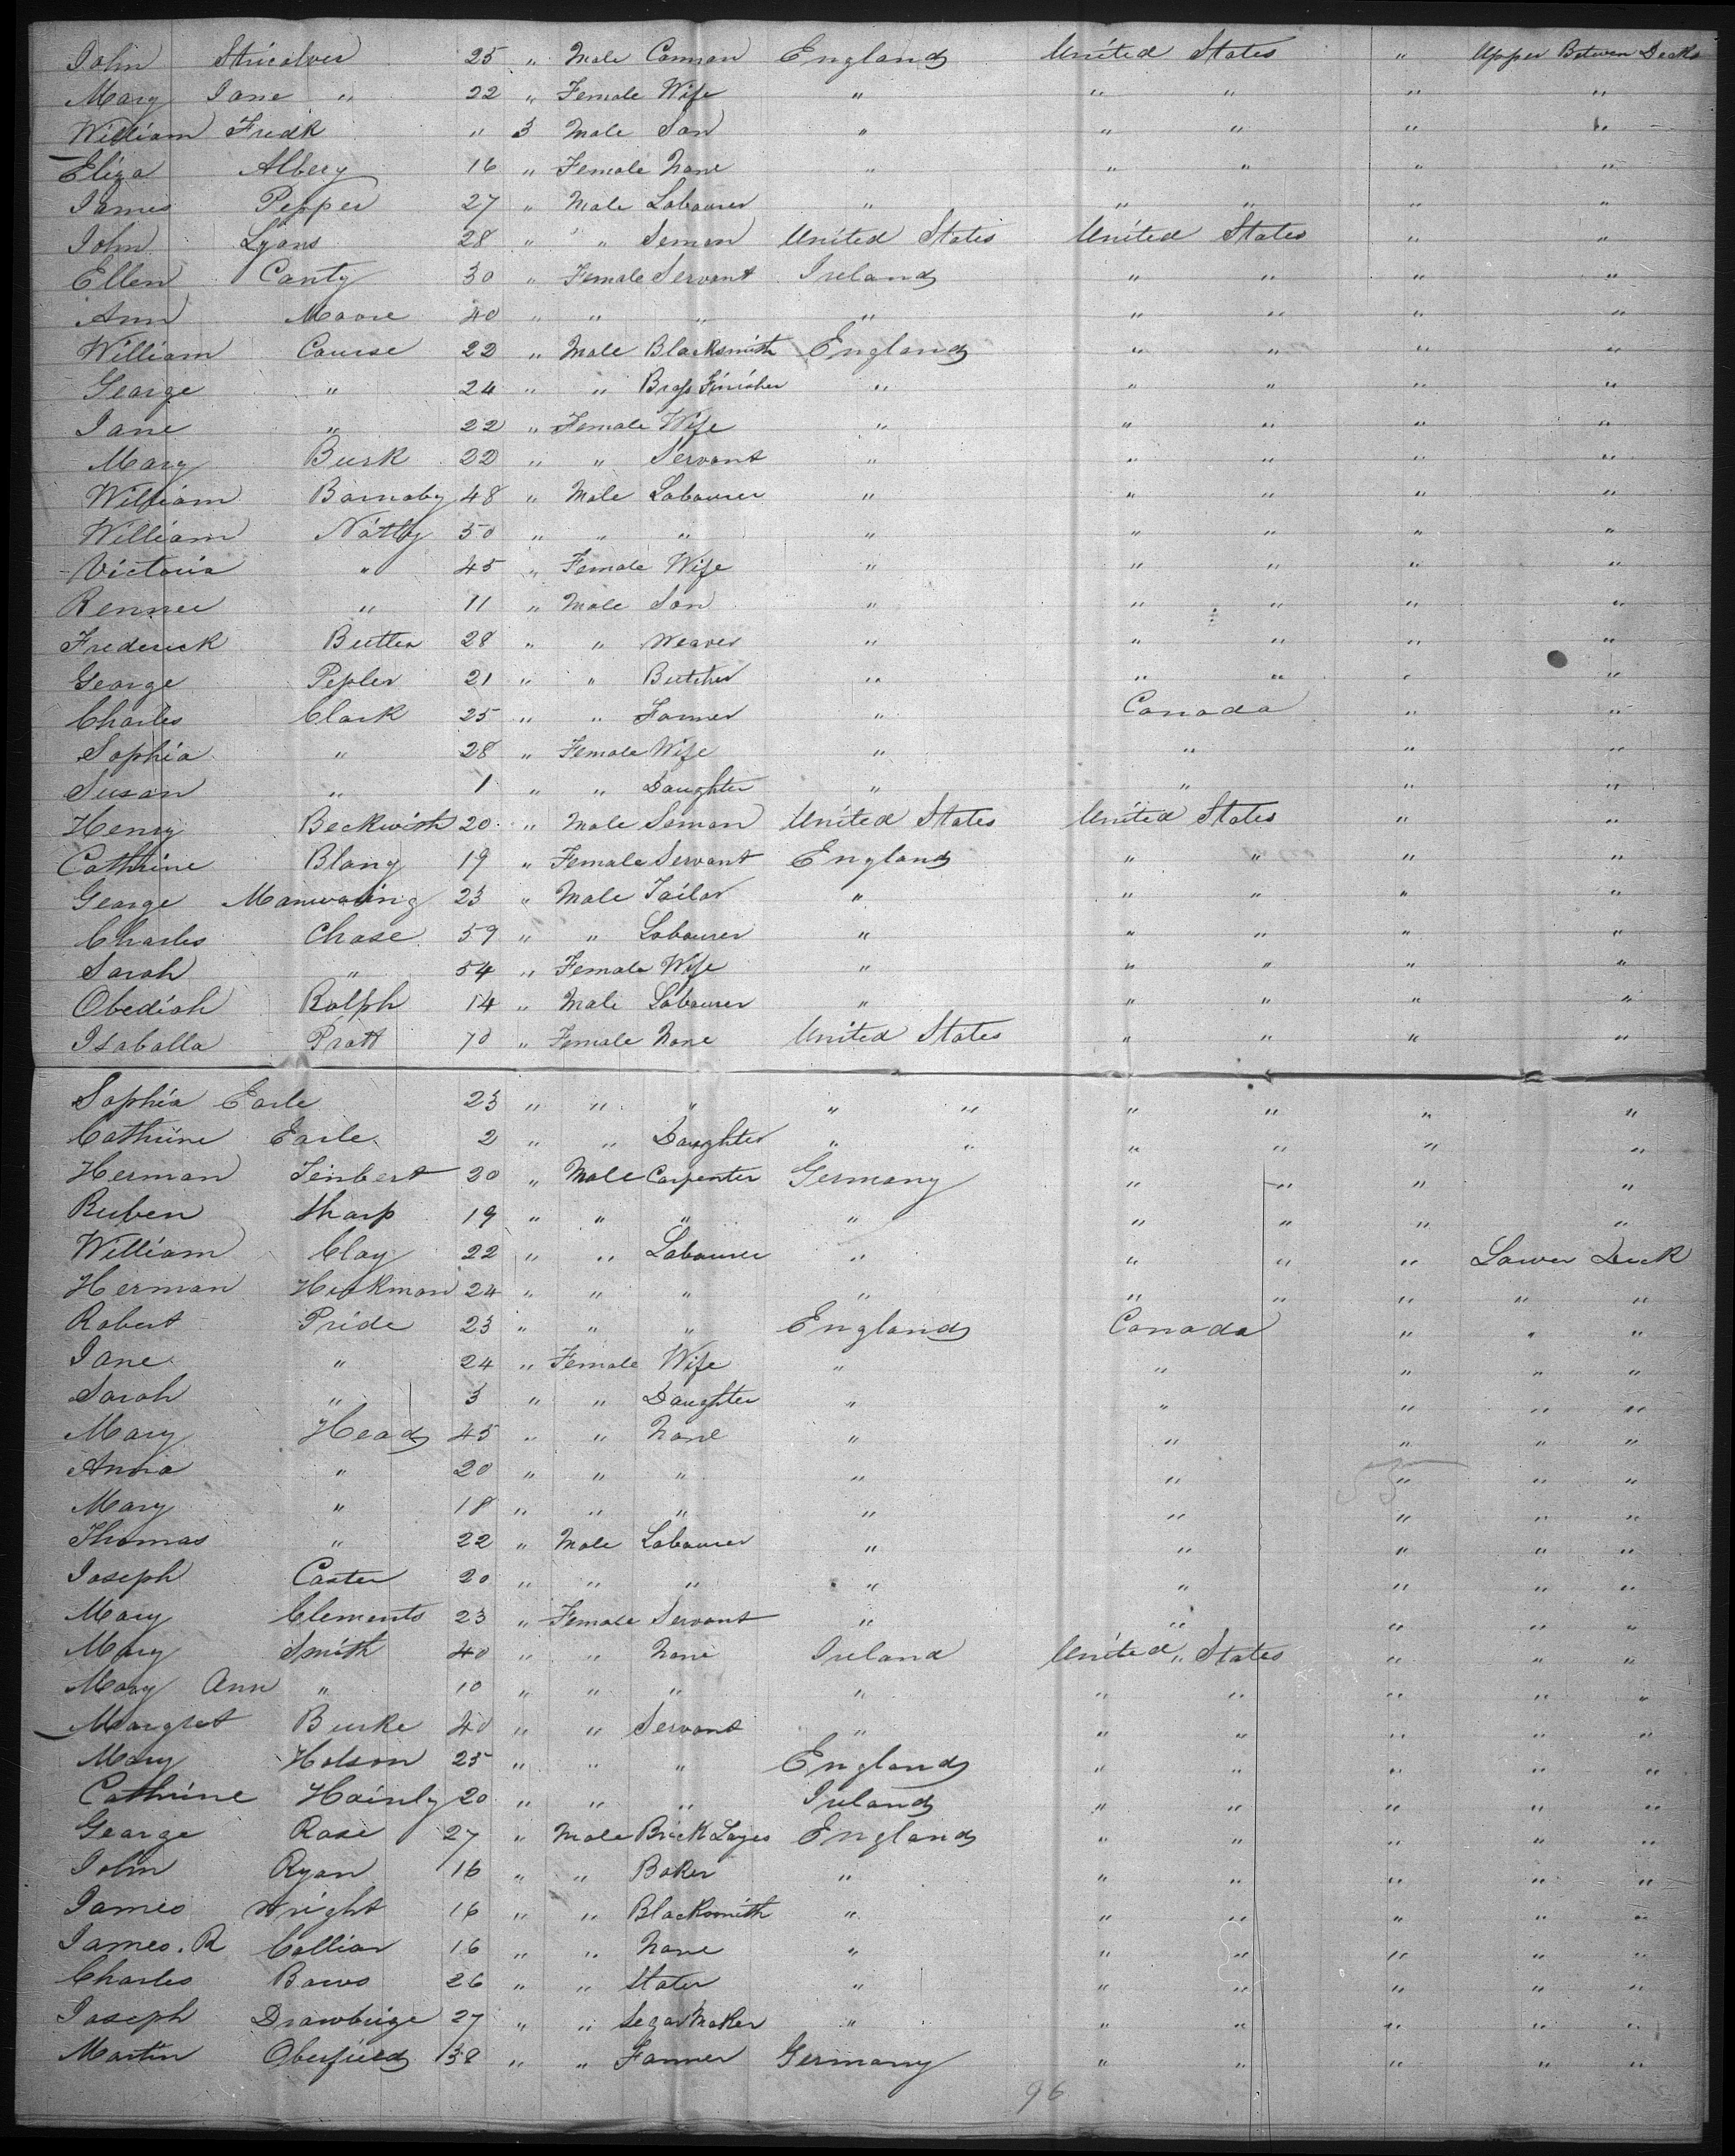 John Stricalver 25 " Male Canman England United States " Upper Between Decks
Mary Jane " 22 " Female Wife " " " " "
William Fredk " 3 Male Son " " " " "
Eliza Albery 16 " Female None " " " " "
James Pepper 27 " Male Labourer " " " " "
John Lyons 28 " " Seman United States United States " "
Ellen Canty 30 " Female Servant Ireland " " " "
Ann Moore 40 " " " " " " " "
William Course 22 " Male Blacksmith England " " " "
George " 24 " " Brass Finisher " " " " "
Jane " 22 " Female Wife " " " " "
Mary Burk 22 " " Servant " " " " "
William Barnaby 48 " Male Labourer " " " " "
William Natly 50 " " " " " " " "
Victoria " 45 " Female Wife " " " " "
Rennee " 11 " Male Son " " " " "
Frederick Butter 28 " " Weaver " " " " "
George Pepler 21 " " Butcher " " " " "
Charles Clark 25 " " Farmer " Canada " "
Sophia " 28 " Female Wife " " " "
Susan " 1 " " Daughter " " " "
Henry Beckwith 20 " Male Seman United States United States " "
Cathrine Blany 19 " Female Servant England " " " "
George Manwaring 23 " Male Tailor " " " " "
Charles Chase 59 " " Labourer " " " " "
Sarah " 54 " Female Wife " " " " "
Obediah Ralph 14 " Male Labourer " " " " "
Isaballa Pratt 70 " Female None United States " " " "
Sophia Earle 23 " " " " " " " " "
Cathrine Earle 2 " " Daughter " " " " " "
Herman Tinbert 20 " Male Carpenter Germany " " " "
Ruben Sharp 19 " " " " " " " "
William Clay 22 " " Labourer " " " " Lower Deck
Herman Heckman 24 " " " " " " " " "
Robert Pride 23 " " " England Canada " " "
Jane " 24 " Female Wife " " " " "
Sarah " 3 " " Daughter " " " " "
Mary Head 45 " " None " " " " "
Anna " 20 " " " " " " " "
Mary " 18 " " " " " " " "
Thomas " 22 " Male Labourer " " " " "
Joseph Carter 20 " " " " " " " "
Mary Clements 23 " Female Servant " " " " "
Mary Smith 40 " " None Ireland United States " " "
Mary Ann " 10 " " " " " " " " "
Margret Burke 40 " " Servant " " " " " "
Mary Holson 25 " " " England " " " " "
Cathrine Hainly 20 " " " Ireland " " " " "
George Rose 27 " Male Brick Layer England " " " " "
John Ryan 16 " " Baker " " " " " "
James Wright 16 " " Blacksmith " " " " " "
James. R Colliar 16 " " None " " " " " "
Charles Baws 26 " " Slater " " " " " "
Joseph Drawbrige 27 " " Segar Maker " " " " " "
Martin Oberfield 38 " " Farmer Germany " " " " "
96